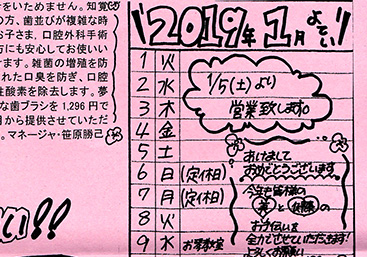 をいためません。知覚
の方、歯並びが複雑な時
お子さま、口腔外科手術
方にも安心してお使いい
けます。雑菌の増殖を防
れた口臭を防ぎ、口腔
性酸素を除去します。夢
な歯ブラシを1,296円で
月から提供させていただ
。マネージャ・笹原勝己
い!!
2019年1月よてい
1 火
2 水
3 木
4 金
5 土
6 日 (定休日)
7 月 (定休日)
8 火
9 水 お茶教室
1/5(土)より
営業致します。
あけまして
おめでとうございます。
今年も皆様の
美と健康の
お手伝いを
全力でさせていただきます!
よろしくお願い